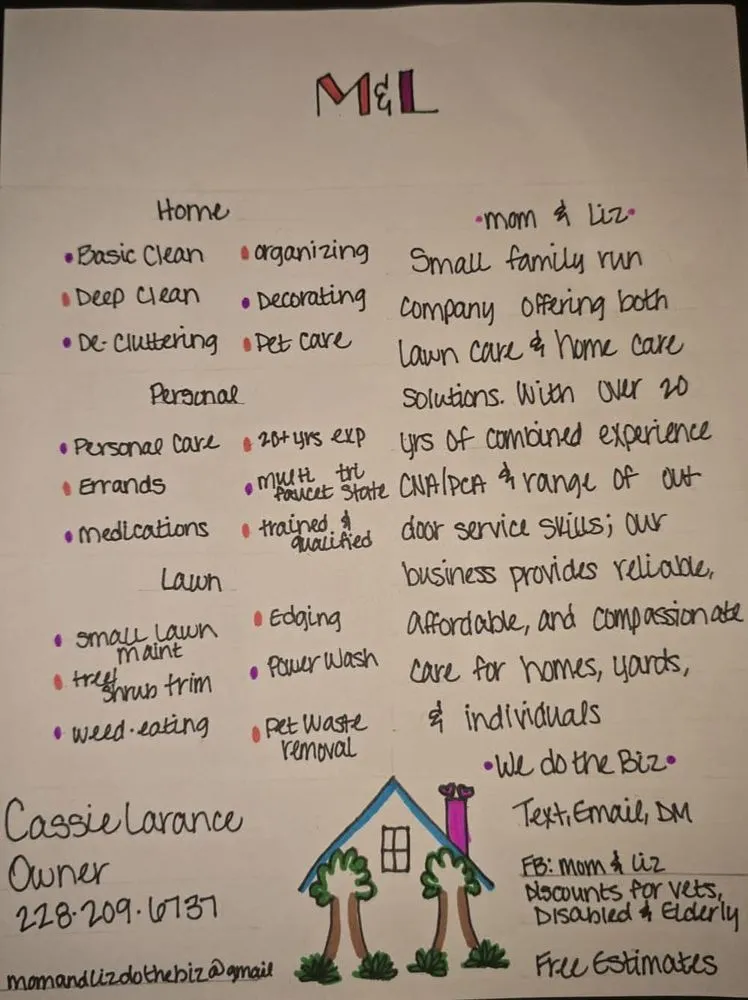 M&L
Home
• Basic Clean • organizing
• Deep Clean • Decorating
• De-Cluttering • Pet Care
Personal
• Personal Care • 20+ yrs exp
• Errands • multi tri
faucet state
• medications • trained &
qualified
Lawn
• small lawn
maint
• Edging
• tree/
shrub trim
• Power Wash
• weed-eating
• Pet Waste
removal
• mom & Liz •
Small family run
company offering both
lawn care & home care
solutions. With over 20
yrs of combined experience
CNA/PCA & range of out
door service skills; our
business provides reliable,
affordable, and compassionate
care for homes, yards,
& individuals
• We do the Biz •
Text, Email, DM
FB: mom & Liz
Discounts for vets,
Disabled & Elderly
Free Estimates
Cassie Larance
Owner
228.209.6737
momandlizdothebiz@gmail